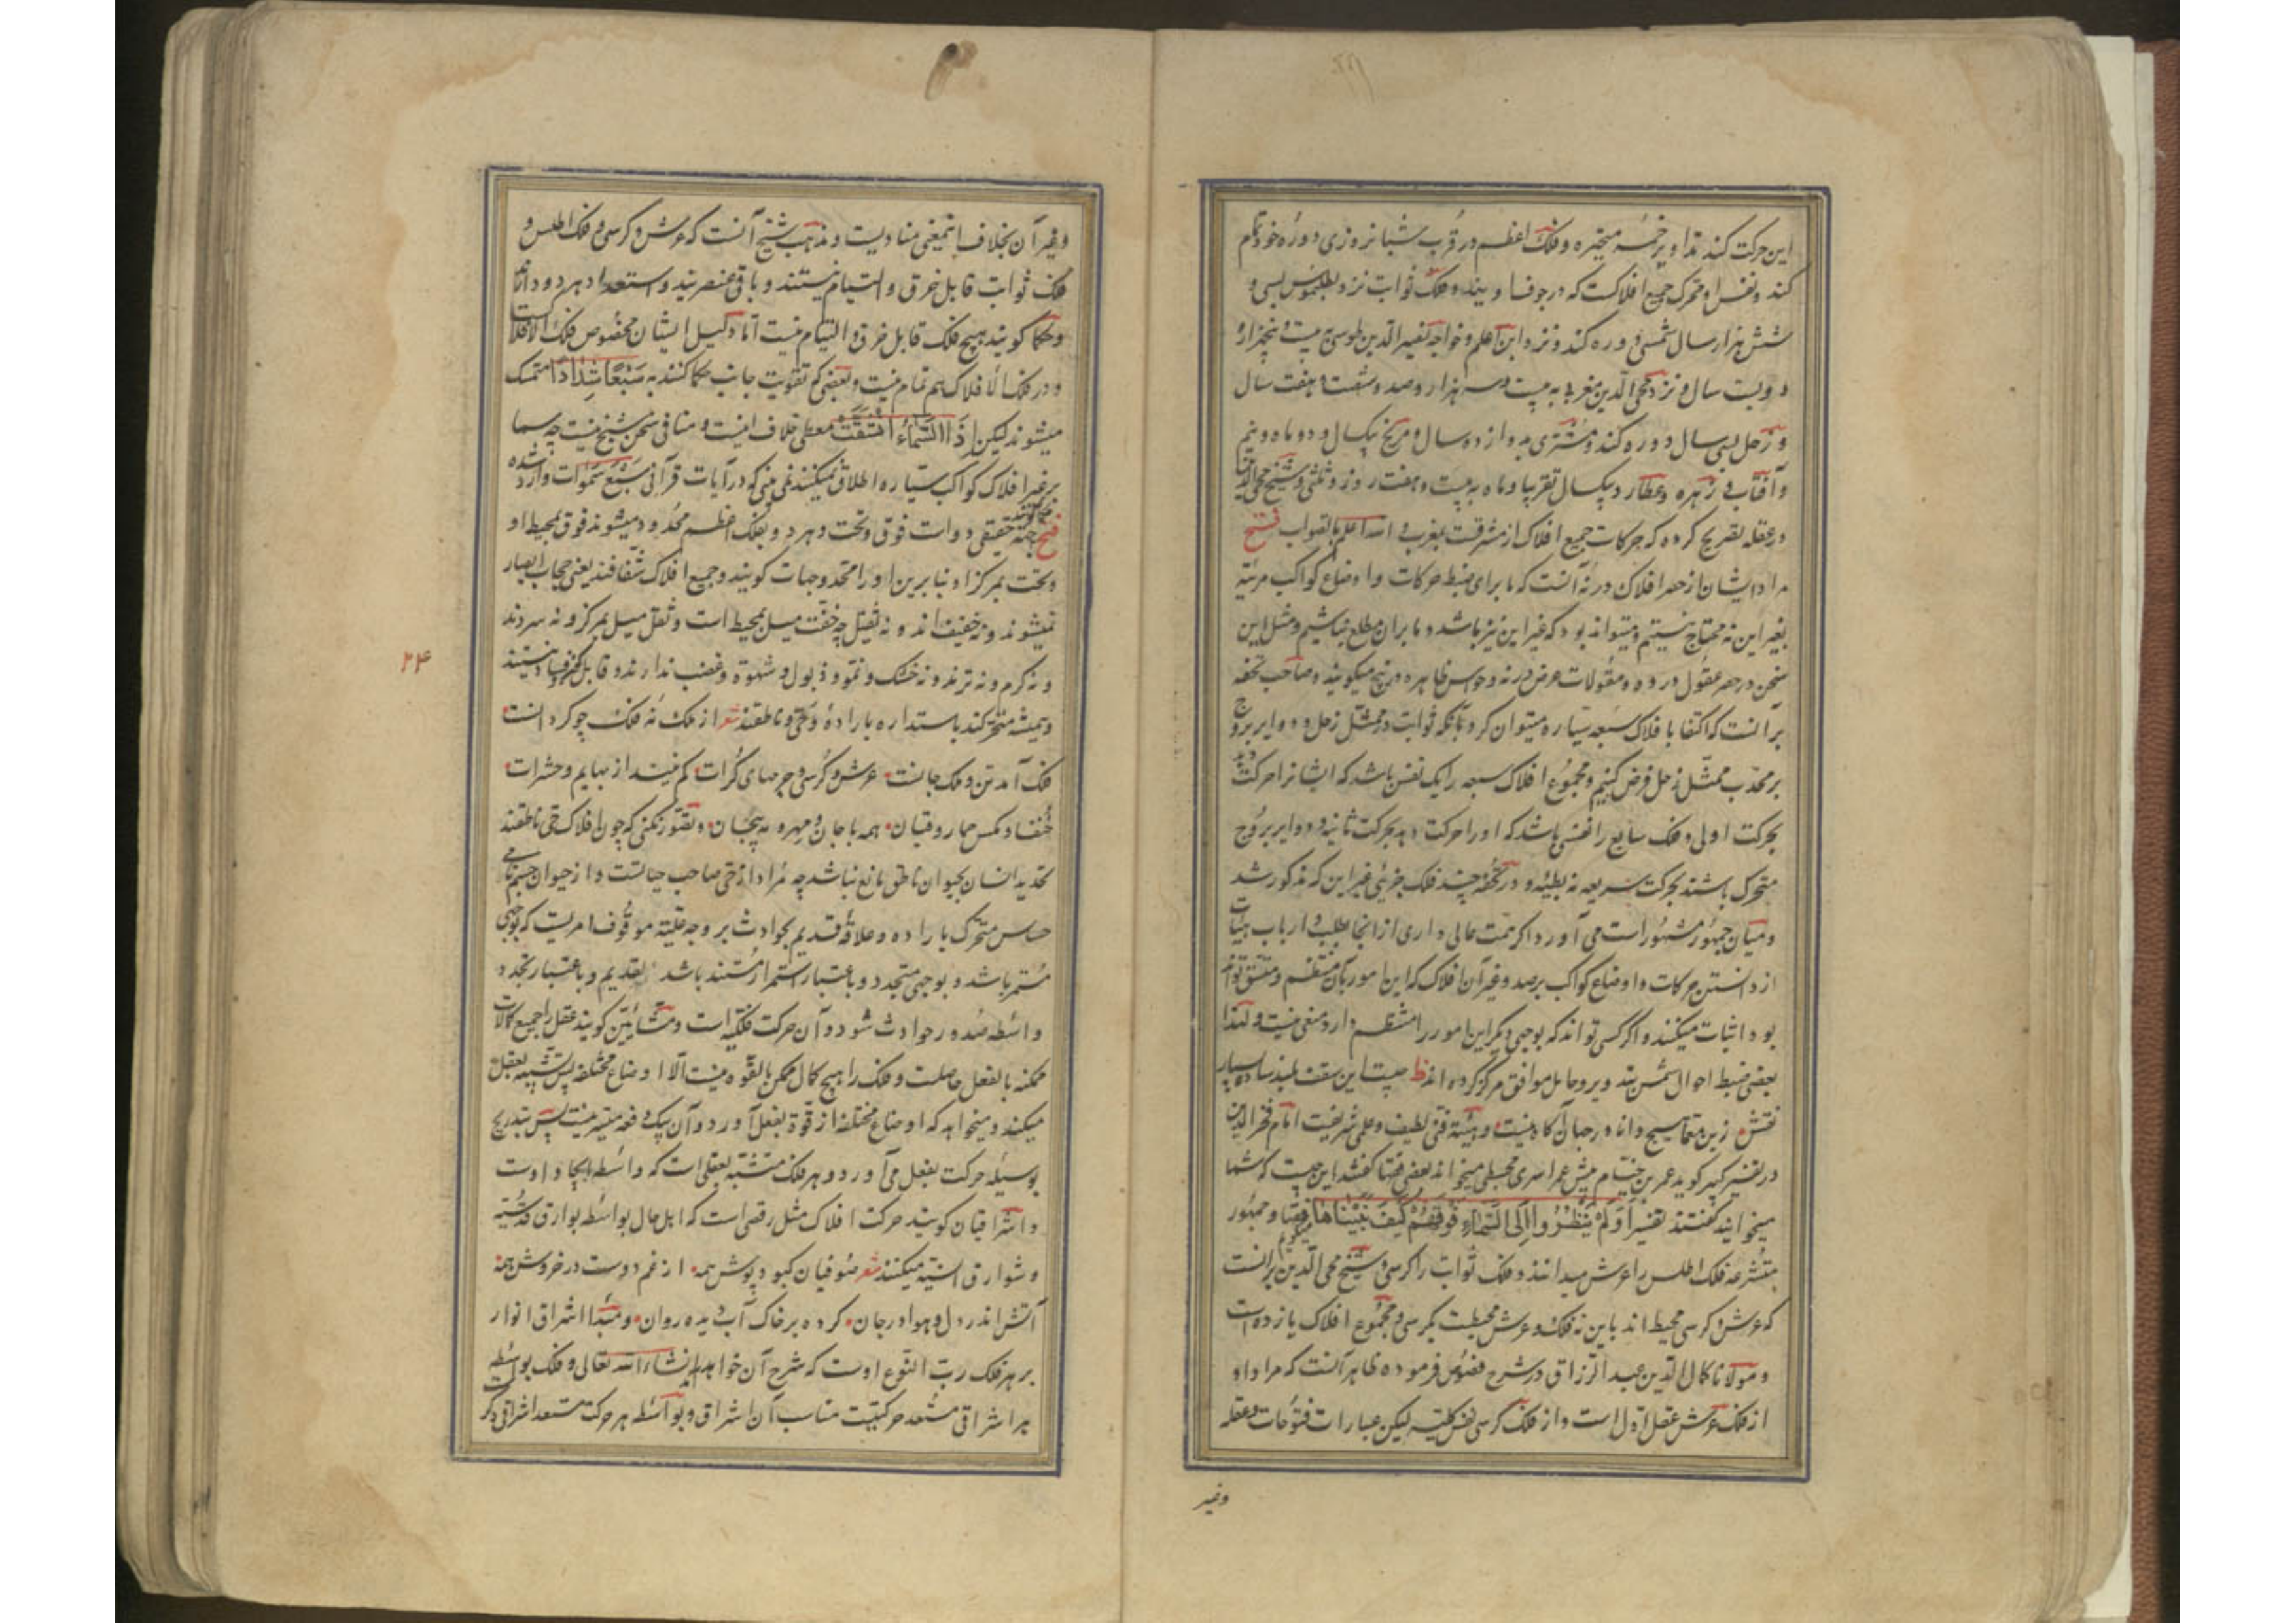 این حرکت کند تداویر خمسه متحیره و فلک اعظم در قرب شبانروزی دوره خود تمام
کند و نفس او محرک جمیع افلاکست که در جوف او یند و فلک ثوابت نزد بطلمیوس بسی و
شش هزار سال شمسی دوره کند و نزد ابن اعلم و خواجه نصیر الدین طوسی به بیست و پنجهزار و
دویست سال و نزد محی الدین مغربی به بیست و سه هزار و صد و شصت و هفت سال
و زحل بسی سال دوره کند و مشتری بدوازده سال و مریخ بیکسال و دو ماه و نیم
و آفتاب و زهره و عطارد بیکسال تقریبا و ماه به بیست و هفت روز و ثلثی و شیخ محی الدین
در عقله تصریح کرده که حرکات جمیع افلاک از مشرقست بمغرب و الله اعلم بالصواب فتح
مراد ایشان از حصر افلاک در نه آنست که ما برای ضبط حرکات و اوضاع کواکب مرئیه
بغیر این نه محتاج نیستیم و میتواند بود که غیر این نیز باشد و ما بران مطلع نباشیم و مثل این
سخن در حصر عقول در ده و مقولات عرض در نه و حواس ظاهره در پنج میگویند و صاحب تحفه
بر آنست که اکتفا با فلاک سبعه سیاره میتوان کرد بآنکه ثوابت در ممثل زحل و دوایر بروج
بر محدب ممثل زحل فرض کنیم و مجموع افلاک سبعه را یک نفس باشد که ایشانرا حرکت دهد
بحرکت اولی و فلک سابع را نفسی باشد که او را حرکت دهد بحرکت ثانیه و دوایر بروج
متحرک باشند بحرکت سریعه نه بطیئه و در تحفه چند فلک جزئی غیر این که مذکور شد
و میان جمهور مشهور است می آورد اگر همت عالی داری از آنجا بطلب و ارباب هیئات
از دانستن حرکات و اوضاع کواکب برصد و غیر آن افلاک که این امور بآن منتظم و متسق تواند
بود اثبات میکنند و اگر کسی تواند که بوجهی دیگر این امور را منتظم دارد منعی نیست و لهذا
بعضی ضبط احوال شمس بتدویر و حامل موافق مرکز کرده اند ظ چیست این سقف بلند ساده بسیار
نقش زین معما هیچ دانا در جهان آگاه نیست و هیئة فنی لطیف و علمی شریفست امام فخر الدین
در تفسیر کبیر گوید عمر بن خیام پیش عمر ابهری مجسطی میخواند بعضی فقها گفتند این چیست که شما
میخوانید گفتند تفسیر اولم ینظروا الی السماء فوقهم کیف بنیناها میخوانیم و جمهور
متشرعه فلک اطلس را عرش میدانند و فلک ثوابت را کرسی و شیخ محی الدین برانست
که عرش و کرسی محیط اند باین نه فلک و عرش محیطست بکرسی و مجموع افلاک یازده است
و مولانا کمال الدین عبد الرزاق در شرح فصوص فرموده ظاهر آنست که مراد او
از فلک عرش عقل اول است و از فلک کرسی نفس کلیه لیکن عبارات فتوحات و عقله
وغیر
وغیر آن بخلاف اینمعنی منادیست و مذهب شیخ آنست که عرش و کرسی و فلک اطلس و
فلک ثوابت قابل خرق و التیام نیستند و باقی عنصریند و استعداد هر دو دارند
و حکما گویند هیچ فلک قابل خرق و التیام نیست اما دلیل ایشان مخصوص فلک الافلاک است
و در فلک الافلاک هم تمام نیست و بعضی که تقویت جانب حکما کنند به سبعا شدادا متمسک
میشوند لیکن اذا السماء انشقت معطی خلاف اینست و منافی سخن شیخ نیست چه سما
بر غیر افلاک کواکب سیاره اطلاق نمیکنند نمی بینی که در آیات قرآنی سبع سموات وارد شده
فتح جهة حقیقی دو است فوق و تحت و هر دو بفلک اعظم محدود میشوند فوق بمحیط او
و تحت بمرکز او بنا برین او را محدد جهات گویند و جمیع افلاک شفافند یعنی حجاب ابصار
نمیشوند و نه خفیف اند و نه ثقیل چه خفت میل بمحیط است و ثقل میل بمرکز و نه سردند
و نه گرم و نه ترند و نه خشک و نمو و ذبول و شهوة و غضب ندارند و قابل کون و فساد نیستند
۲۴
و همیشه متحرکند باستداره بارادهٔ و حی و ناطقند شعر از ملک نه فلک چو گردانست
فلک آمد تن و ملک جانست عرش و کرسی و جرمهای کرات کم نیند از بهایم و حشرات
خنفسا و مگس حمار و قبان همه با جان و مهر و مه بیجان و تصور نکنی که چون افلاک حی ناطقند
تحدید انسان بحیوان ناطق مانع نباشد چه مراد از حی صاحب حیاتست و از حیوان جسم نامی
حساس متحرک باراده و علاقه قدیم بحوادث بر وجه علیة موقوف امریست که بوجهی
مستمر باشد و بوجهی متجدد و باعتبار استمرار مستند باشد بقدیم و باعتبار تجدد
واسطه صدور حوادث شود و آن حرکت فلکیه است و مشائین گویند عقل را جمیع کمالات
ممکنه بالفعل حاصلست و فلک را هیچ کمال ممکن بالقوه نیست الا اوضاع مختلفه پس تشبه بعقل
میکند و میخواهد که اوضاع مختلفه از قوة بفعل آورد و آن بیک دفعه میسر نیست پس بتدریج
بوسیله حرکت بفعل می آورد و هر فلک متشبه بعقلی است که واسطه ایجاد اوست
و اشراقیان گویند حرکت افلاک مثل رقصی است که اهل حال بواسطه بوارق قدسیه
و شوارق انسیه میکنند شعر صوفیان کبود پوش همه از غم دوست در خروش همه
آتش اندر دل و هوا در جان کرده بر خاک آب دیده روان و مبدأ اشراق انوار
بر هر فلک رب النوع اوست که شرح آن خواهد آمد انشاء الله تعالی و فلک بواسطه
هر اشراقی مستعد حرکتیست مناسب آن اشراق و بواسطه هر حرکت مستعد اشراقی دیگر است